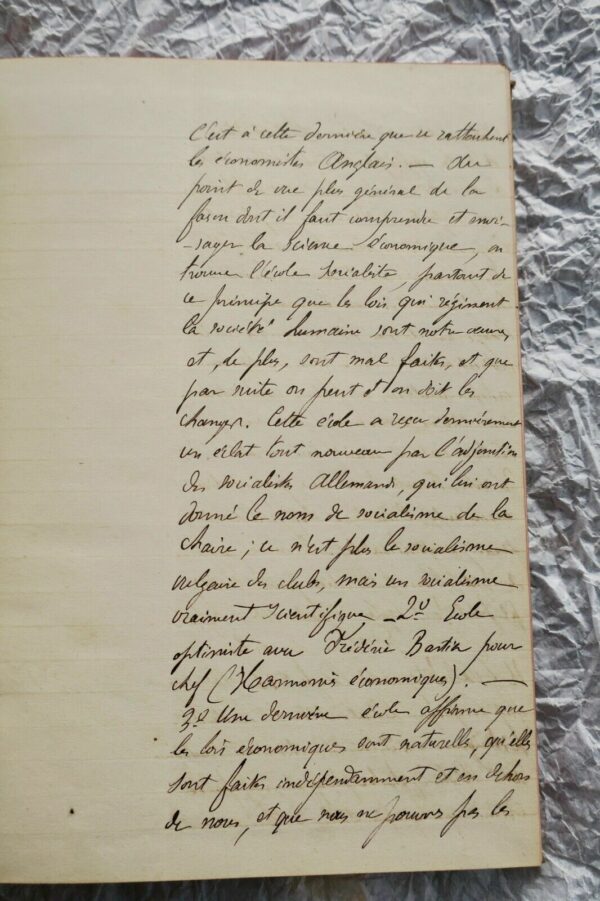 C'est à cette dernière que se rattachent
les économistes Anglais. — Du
point de vue plus général de la
façon dont il faut comprendre et envi-
-sager la science économique, on
trouve l'école socialiste, partant de
ce principe que les lois qui régissent
la société humaine sont notre œuvre,
et, de plus, sont mal faites, et que
par suite on peut et on doit les
changer. Cette école a reçu dernièrement
un éclat tout nouveau par l'adjonction
des socialistes Allemands, qui lui ont
donné le nom de socialisme de la
chaire ; ce n'est plus le socialisme
vulgaire des clubs, mais un socialisme
vraiment scientifique _ 2º École
optimiste avec Frédéric Bastia pour
chef (Harmonies économiques). —
3º Une dernière école affirme que
les lois économiques sont naturelles, qu'elles
sont faites indépendamment et en dehors
de nous, et que nous ne pouvons pas les